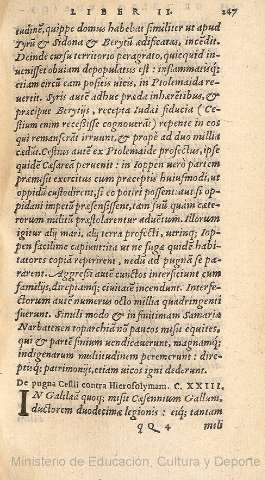 LIBER II. 247
tudinẽ, quippe domus habebat similiter ut apud
Tyrũ & Sidona & Berytũ ædificatas, incẽdit.
Deinde cursu territorio peragrato, quicquid in-
uenisset obuiam depopulatus est: inflammatisq;
etiam circũ eam positis uicis, in Ptolemaida re-
uertit. Syris autẽ adhuc prædæ inhærẽtibus, &
præcipue Berytijs, recepta Iudæi fiducia (Ce-
stium enim recessisse cognouerãt) repente in eos
qui remanserãt irruunt, & propè ad duo millia
cædũt. Cestius autẽ ex Ptolemaide profectus, ipse
quidẽ Cæsareã peruenit: in Ioppen uerò partem
præmisit exercitus cum præceptis huiusmodi, ut
oppidũ custodirent, si eo potiri possent: aut si op-
pidani impetũ præsensissent, tam suũ quam cæte-
rorum militũ præstolarentur aduẽtum. Illorum
igitur alij mari, alij terra profecti, utrinq; Iop-
pen facilime capiunt: ita ut ne fuga quidẽ habi-
tatores copiã reperirent, nedũ ad pugnã se pa-
rarent. Aggressi autẽ cunctos interficiunt cum
familijs, direptamq; ciuitatẽ incendunt. Interfe-
ctorum autẽ numerus octo millia quadringenti
fuerunt. Simili modo & in finitimam Samariæ
Narbatenen toparchiã nõ paucos misit equites,
qui & parte finium uendicauerunt, magnamq;
indigenarum multitudinem peremerunt: dire-
ptisq; patrimonijs, etiam uicos incẽderunt.
De pugna Cestij contra Hierosolymam. C. XXIII.
IN Galilæã quoq; misit Cæsennium Gallum,
ductorem duodecimæ legionis: eiq; tantam
q Q 4 mili
Ministerio de Educación, Cultura y Deporte